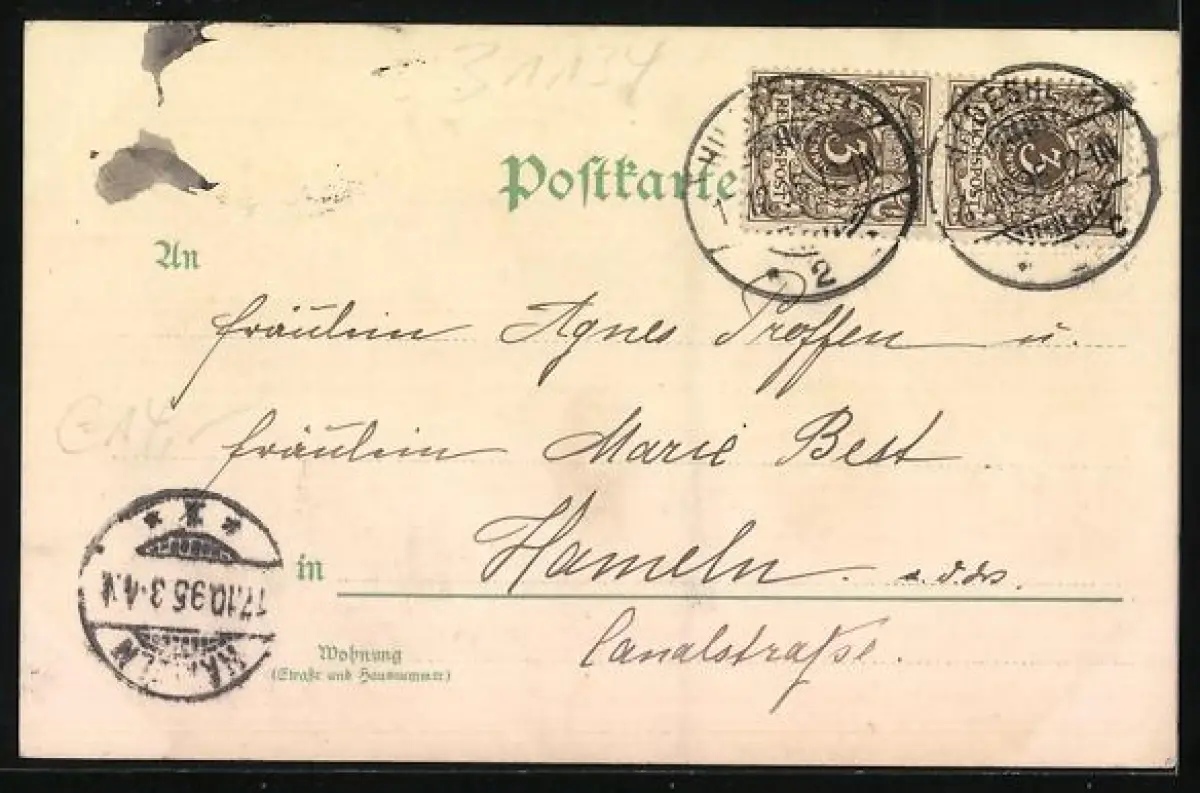 31134
Postkarte
An
Fräulein Agnes Proffen u.
Fräulein Marie Best
in Hameln
Canalstraße.
Wohnung
(Straße und Hausnummer)
3
REICHSPOST
3
REICHSPOST
2
HAMELN
17.10.95 3-4.V